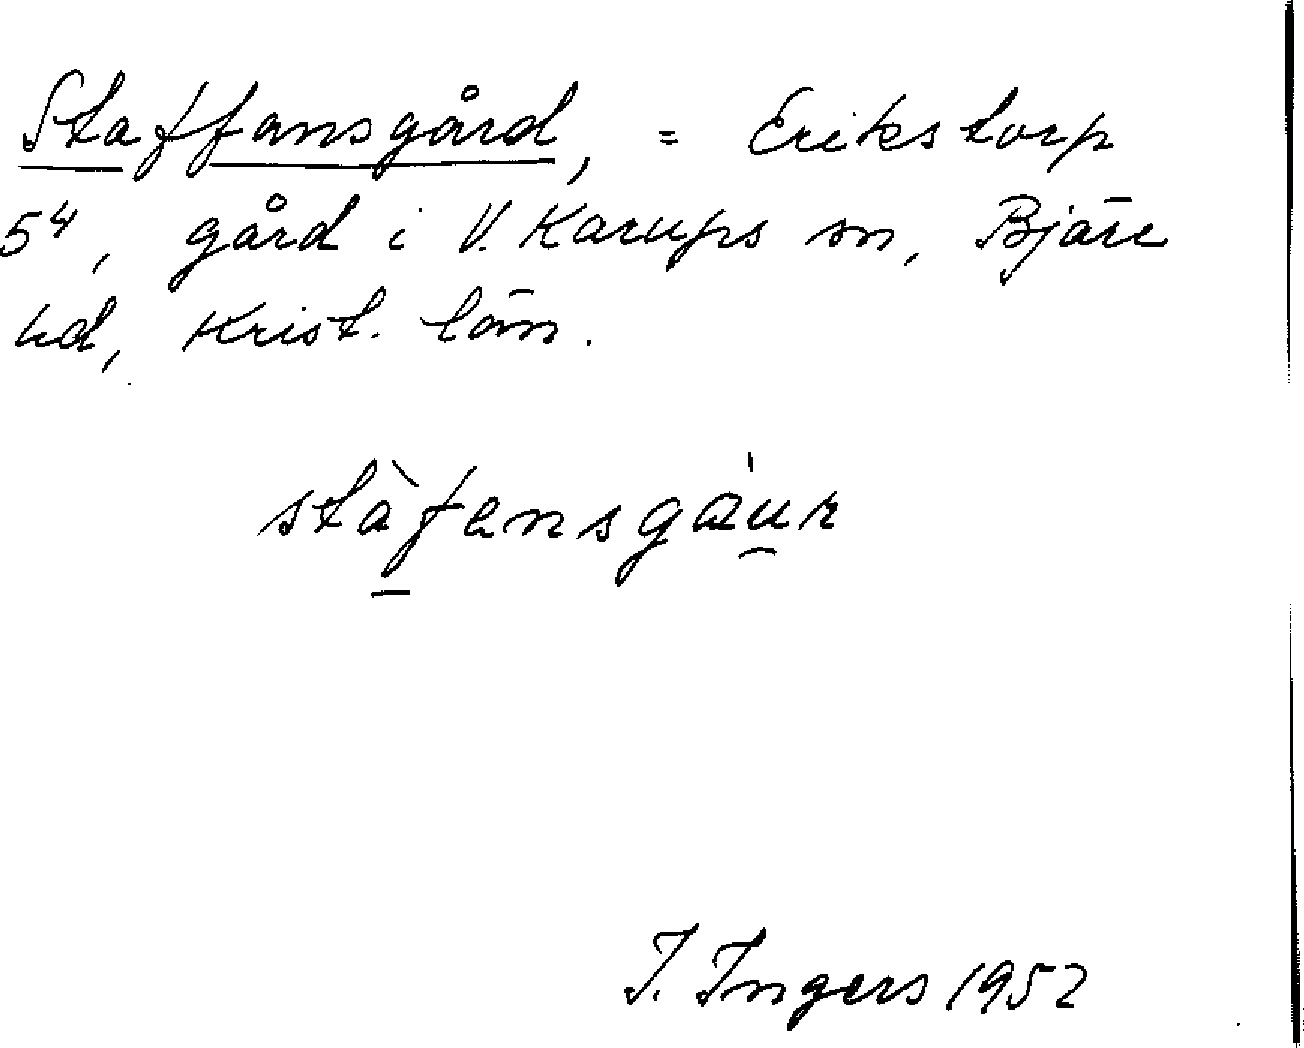 Staffansgård, = Erikstorp
5⁴, gård i V. Karups sn, Bjäre
hd, Krist. län.
stàfansgáur
I. Ingers 1952